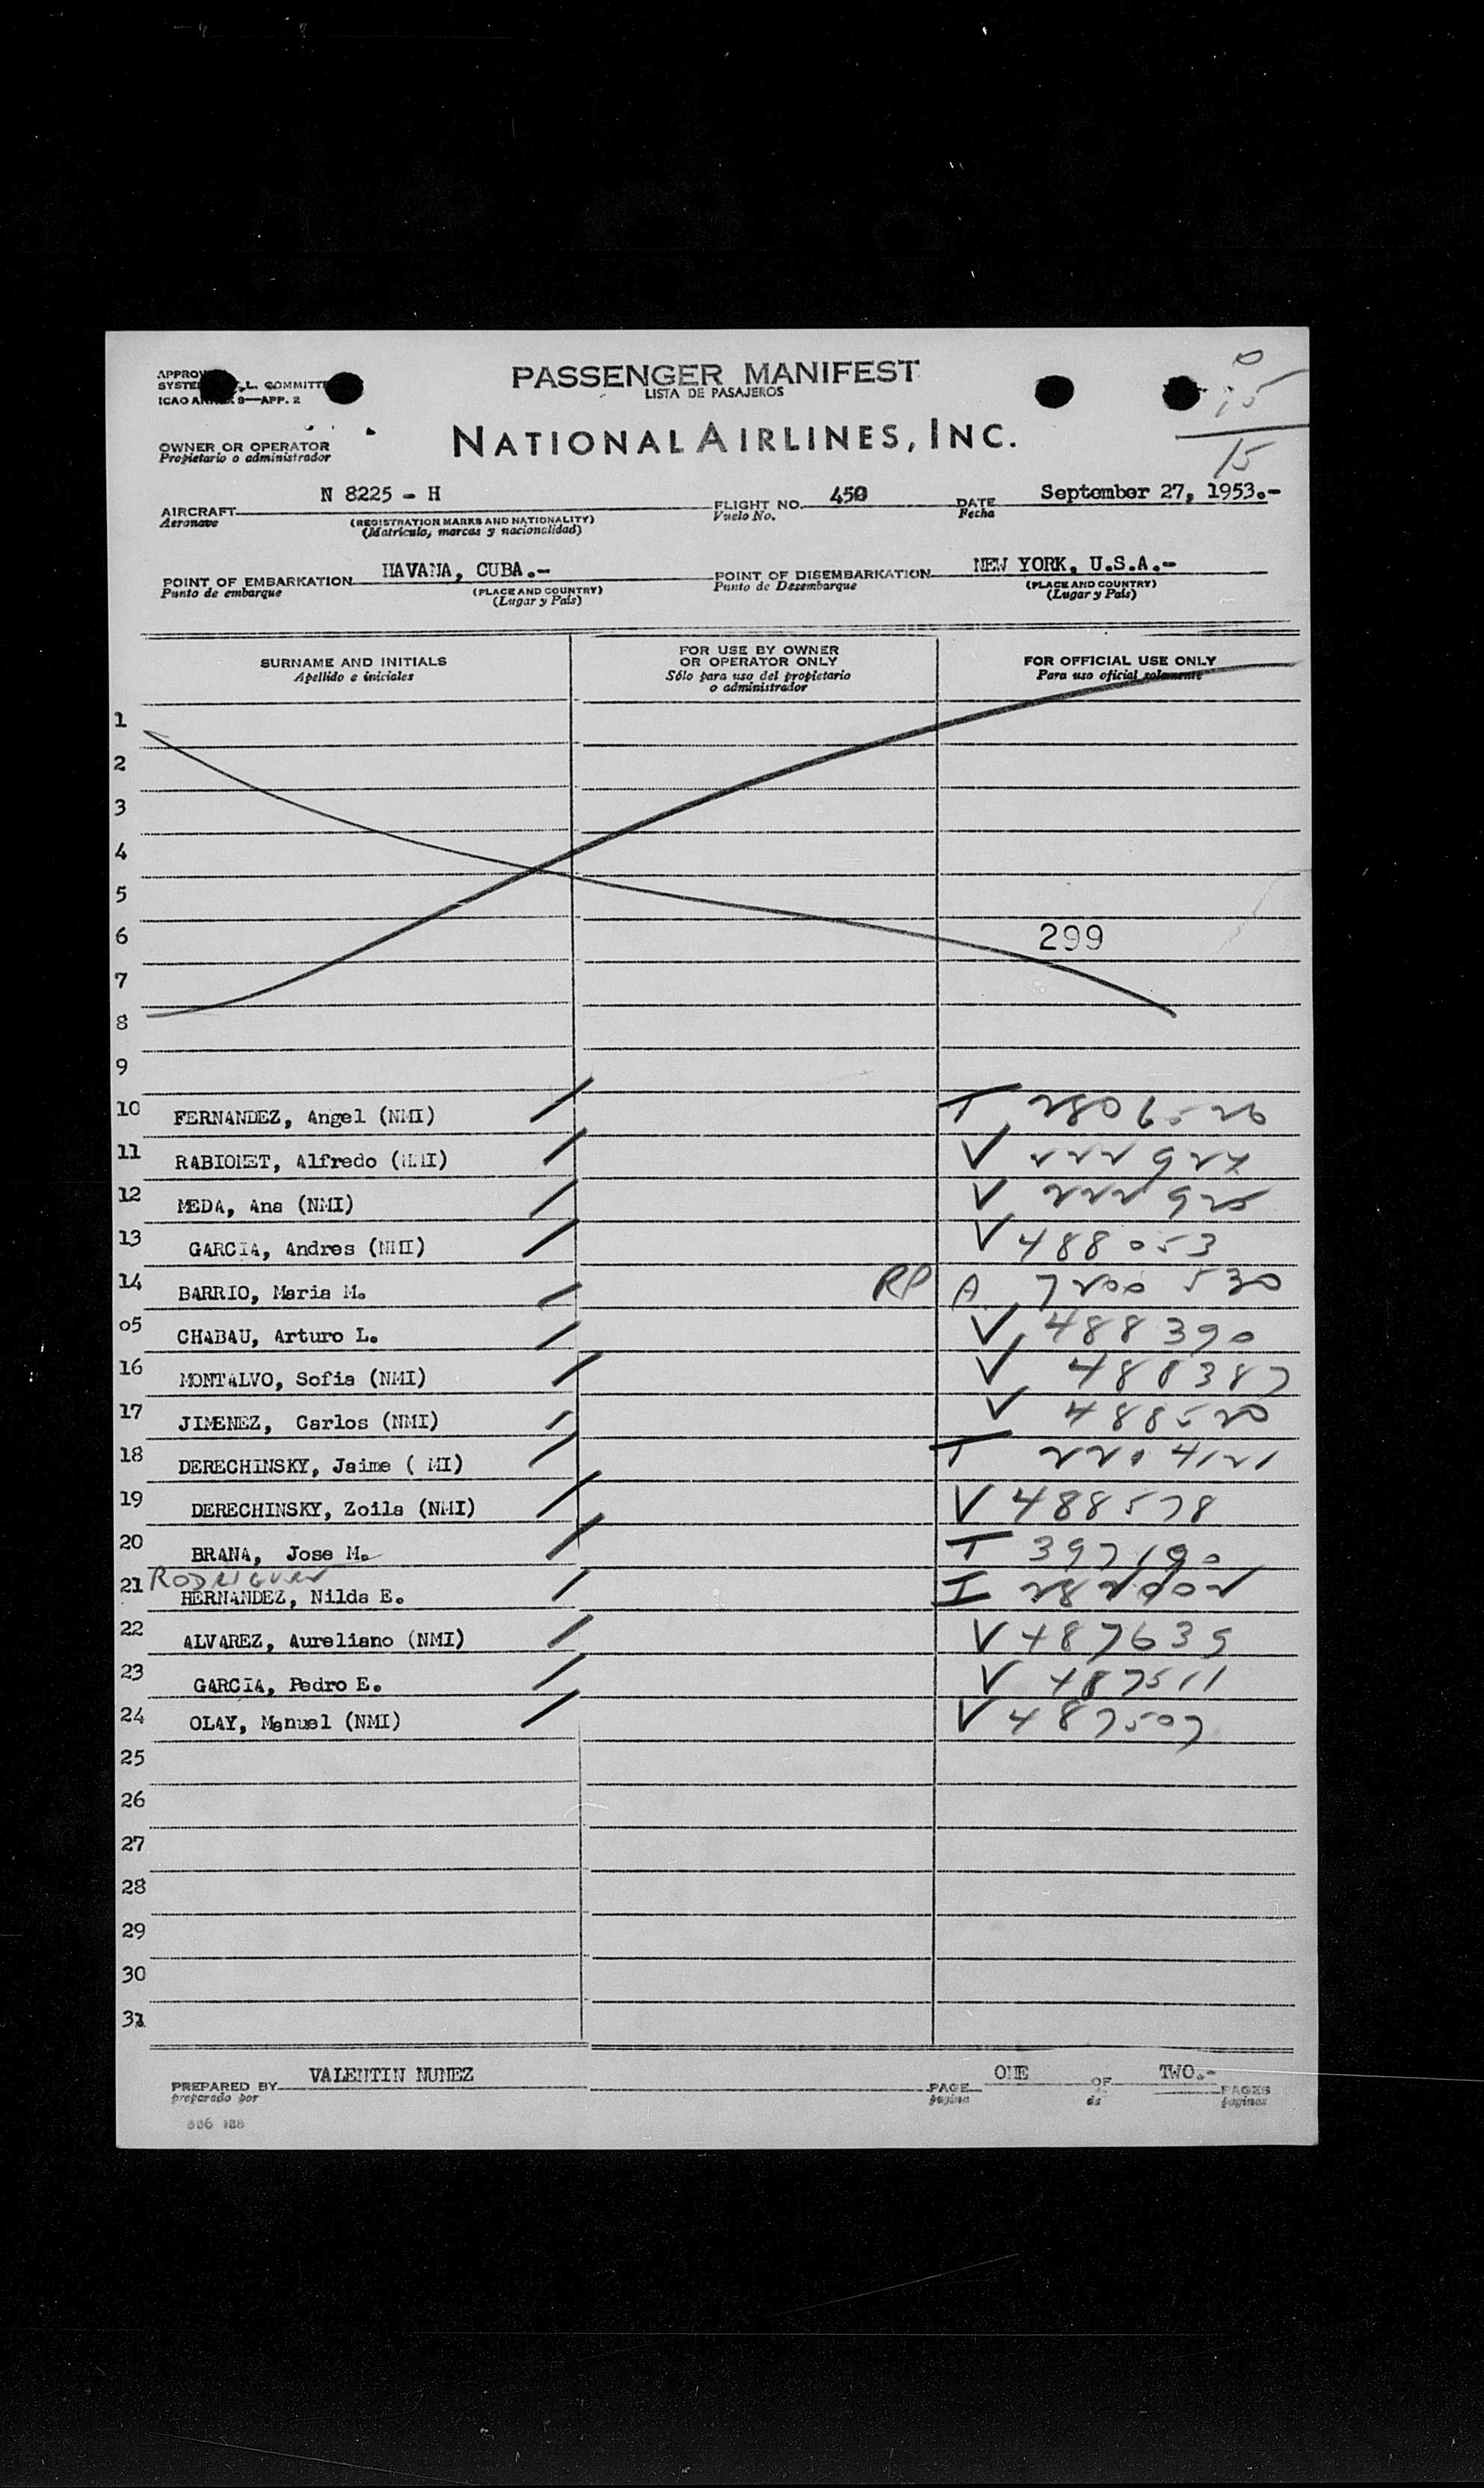 PASSENGER MANIFEST
LISTA DE PASAJEROS
ICAO 9—APP. 2
OWNER OR OPERATOR
Propietario o administrador
NATIONAL AIRLINES, INC.
15
15
AIRCRAFT N 8225 - H FLIGHT NO. 450 DATE September 27, 1953.-
Aeronave (REGISTRATION MARKS AND NATIONALITY) Vuelo No. Fecha
(Matricula, marcas y nacionalidad)
POINT OF EMBARKATION HAVANA, CUBA.- POINT OF DISEMBARKATION NEW YORK, U.S.A.-
Punto de embarque (PLACE AND COUNTRY) Punto de Desembarque (PLACE AND COUNTRY)
(Lugar y País) (Lugar y País)
SURNAME AND INITIALS
Apellido e iniciales
FOR USE BY OWNER
OR OPERATOR ONLY
Sólo para uso del propietario
o administrador
FOR OFFICIAL USE ONLY
Para uso oficial solamente
1
2
3
4
5
6 299
7
8
9
10 FERNANDEZ, Angel (NMI) T
11 RABIONET, Alfredo (NMI) V
12 MEDA, Ana (NMI) V
13 GARCIA, Andres (NMI) V 488053
14 BARRIO, Maria M. RP A 7200 530
05 CHABAU, Arturo L. V 488390
16 MONTALVO, Sofia (NMI) V 488387
17 JIMENEZ, Carlos (NMI) V 488520
18 DERECHINSKY, Jaime ( MI) T
19 DERECHINSKY, Zoila (NMI) V 488578
20 BRANA, Jose M. T 397190
RODRIGUEZ
21 HERNANDEZ, Nilda E. I
22 ALVAREZ, Aureliano (NMI) V 487639
23 GARCIA, Pedro E. V 487511
24 OLAY, Manuel (NMI) V 487507
25
26
27
28
29
30
31
PREPARED BY VALENTIN NUNEZ PAGE ONE OF TWO.- PAGES
preparado por pagina de paginas